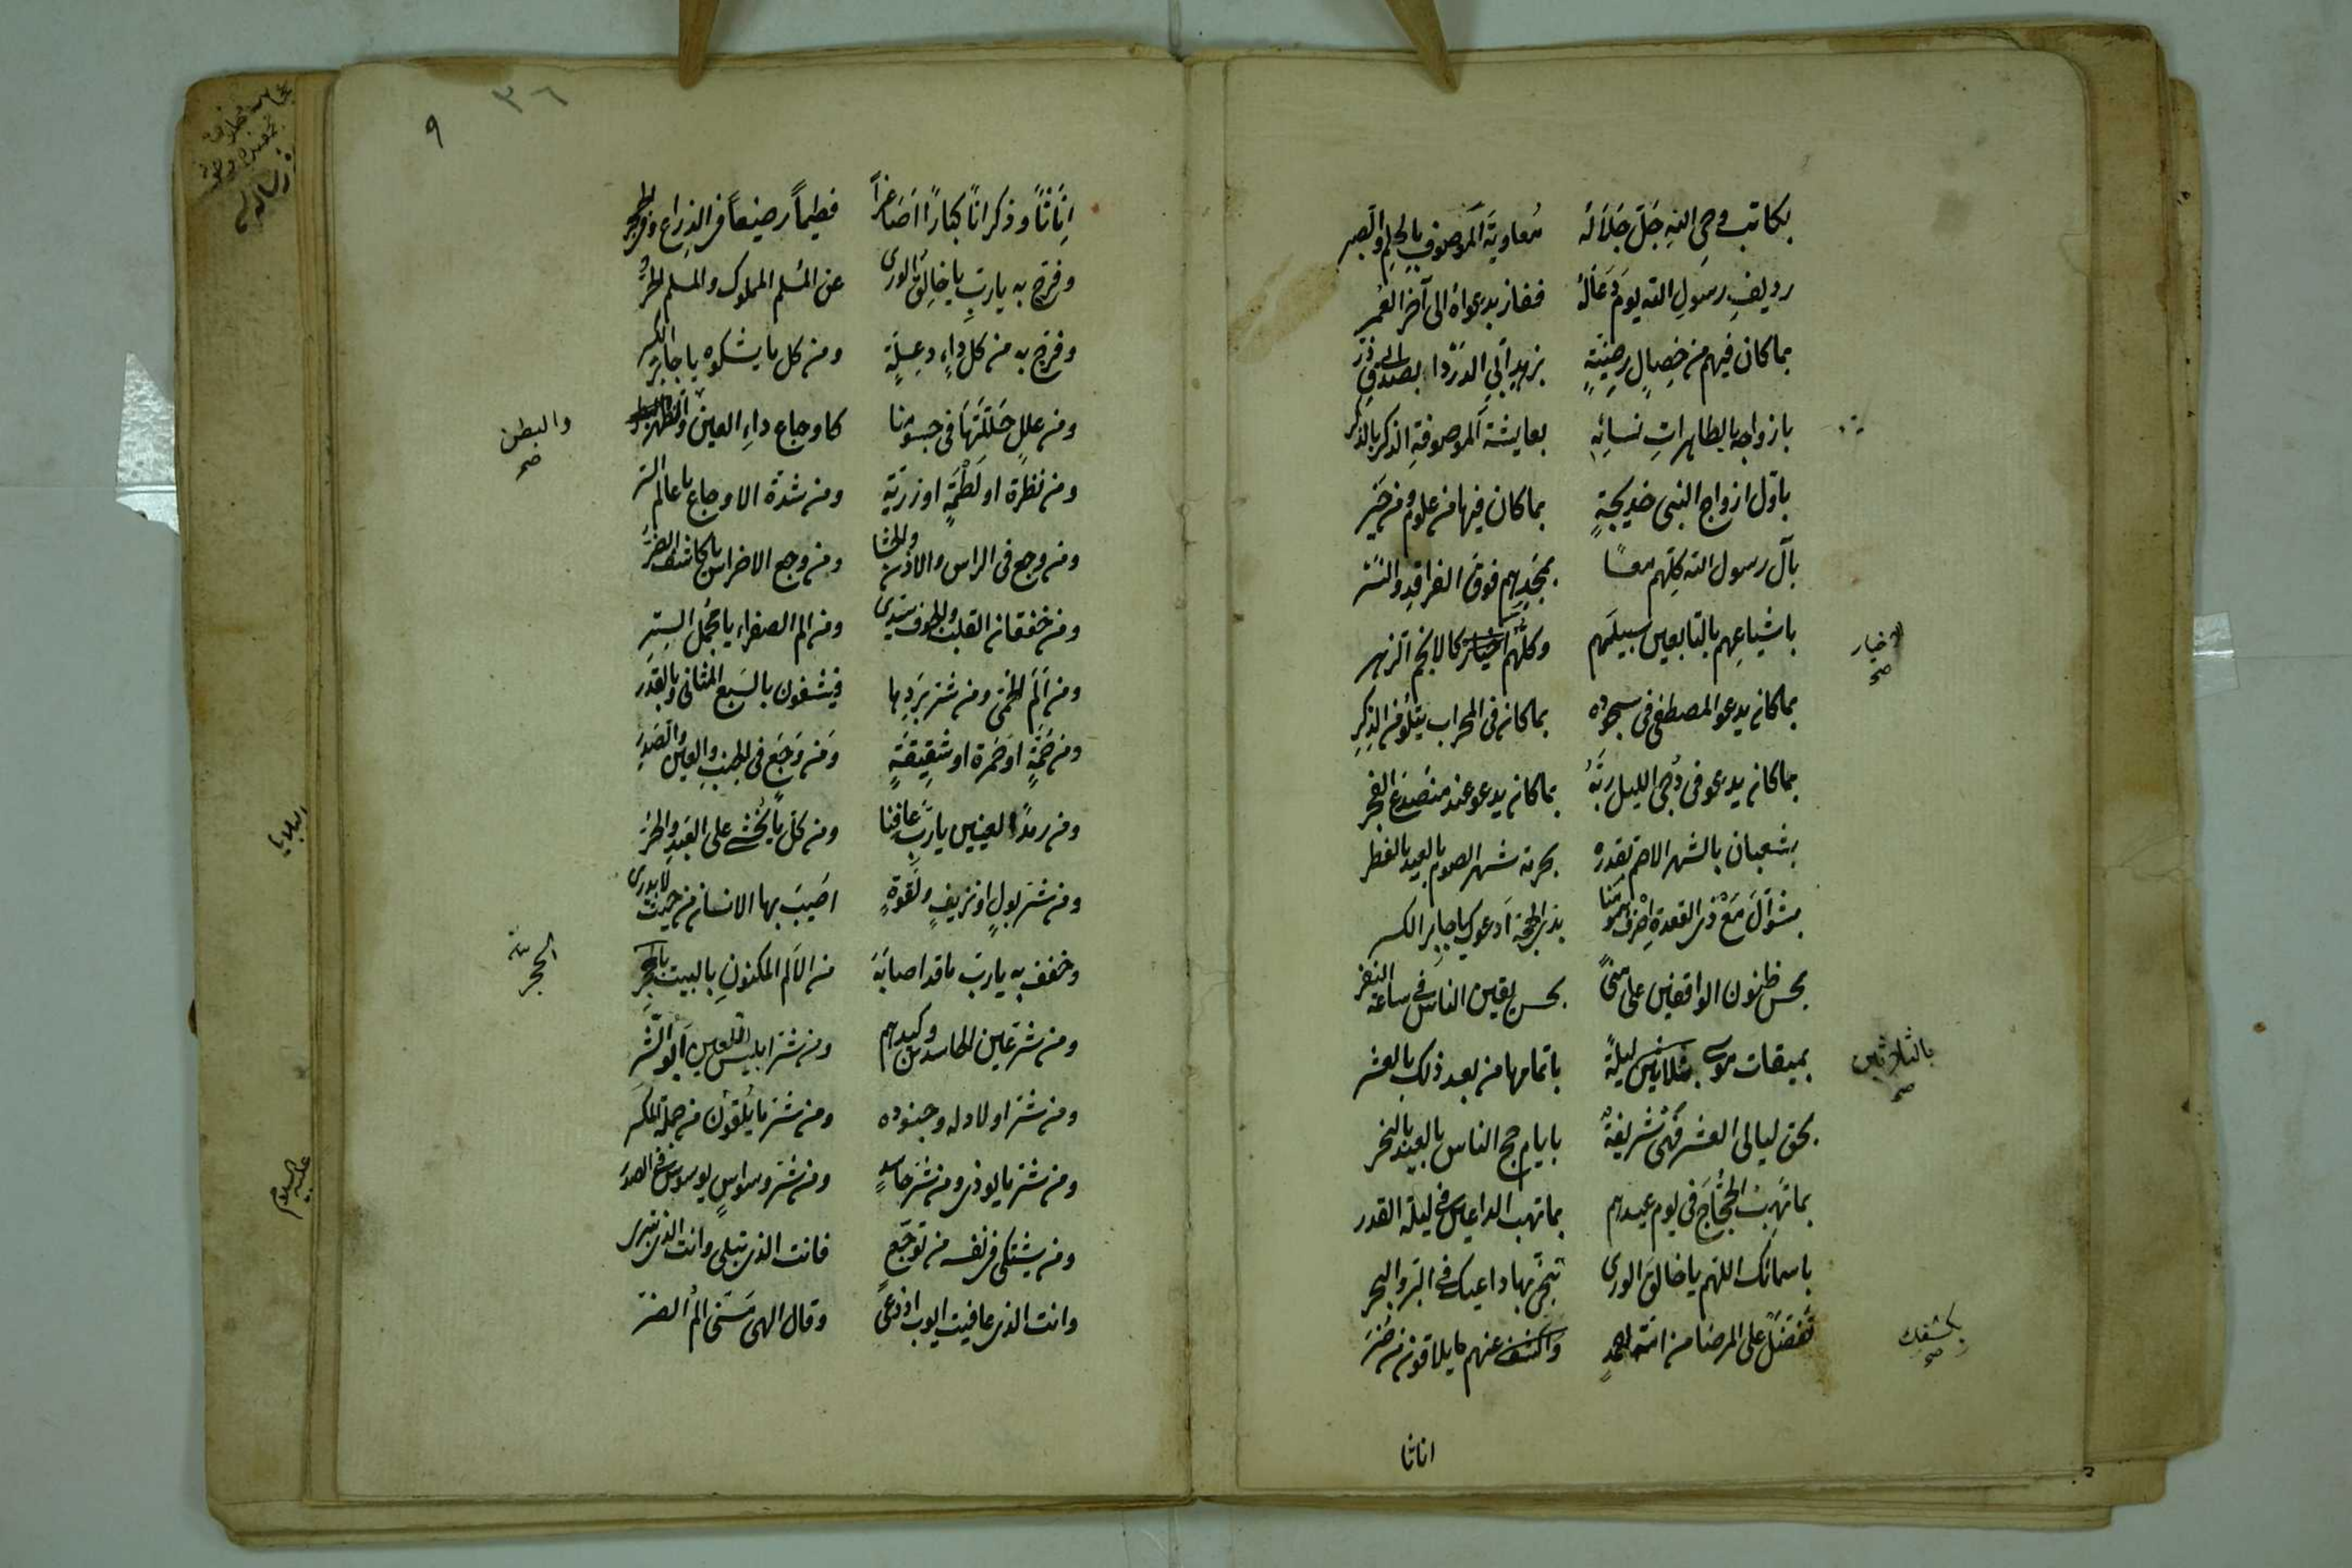 بكاتب وحي الله جَلّ جَلَالُه معاوية الموصوف بالحلم والصبر
رديف رسول الله يوم دعاله ففاز بدعواه الى آخر العمر
بما كان فيهم من خصال رضيّة بزهد أبي الدردا بصدق ابي ذر
بازواجه بالطاهرات نسائه بعايشة الموصوفة الذكر بالذكر
باول ازواج النبي خديجة بما كان فيها من علوم ومن خير
بآل رسول الله كلهم معا بمجدهم فوق الفراقد والنسر
باشياعهم بالتابعين سبيلهم وكلهم اخيار كالانجم الزهر
الاخيار صح
بما كان يدعو المصطفى في سجوده بما كان في المحراب يتلو من الذكر
بما كان يدعو في دُجى الليل ربّه بما كان يدعو عند منصدع الفجر
بشعبان بالشهر الاصم بقدره بحرمة شهر الصوم بالعيد بالفطر
بشوال مع ذي القعدة اصرف همومنا بذي الحجة ادعوك يا جابر الكسر
بحسن ظنون الواقفين على منىً بحسن يقين الناس في ساعة النفر
بميقات موسى بثلاثين ليلة باتمامها من بعد ذلك بالعشر
بالثلاثين صح
بحق ليالي العشر فهي شريفة بايام حج الناس بالعيد بالنحر
بما تهب الحُجّاج في يوم عيدهم بما تهب الداعين في ليلة القدر
باسمائك اللهم يا خالق الورى تنجّي بها داعيك في البر والبحر
تفضل على المرضا من امة احمد واكشف عنهم ما يلاقون من ضر
بكشفك صح
اناثا
٣٦
٩
اِنَاثاً وذكراناً كباراً اصَاغراً فطيماً رضيعاً في الذراع وفي الحجر
وفرّج به يا ربّ يا خالق الورى عن المسلم المملوك والمسلم الحرّ
وفرّج به من كل داءٍ وعلّةٍ ومن كل ما يشكوه يا جابر الكسر
ومن علل حَلَّلتَها في جسومنا كاوجاع داءِ العين والظهر
والبطن صح
ومن نظرة او لَطْمَةٍ او رزية ومن شدّة الاوجاع يا عالم السر
ومن وجع في الراس والاذن والحشا ومن وجع الاضراس يا كاشف الضر
ومن خفقان القلب والخوف سيدي ومن الم الصفراء يا مجمل الستر
ومن الم الحُمّى ومن شرّ بَردها فيشفون بالسبع المثاني وبالقدر
ومن حُمّةٍ او حُمرة او شقيقةٍ ومن وَجَع في الجنب والعين والصدر
ومن رمد العينين يا ربّ عافنا ومن كل ما يُخشى على العبد والحر
ومن شرّ بولٍ او نزيف ولقوةٍ اصيب بها الانسان من حيث لا يدري
وخفف به يا رب ما قد اصابهَ من الالم المكنون بالبيت بالحجر
الحجر
ومن شر عين الحاسدين وكيدهم ومن شر ابليس اللعين ابو الشر
ومن شر اولادله وجنوده ومن شر ما يُلقون من جملة المكر
ومن شر ما يوذى ومن شر حاسدٍ ومن شر وسواسٍ يوسوس في الصدر
ومن يشتكي في نفسه من توجّع فانت الذي تبلي وانت الذي تبري
وانت الذي عافيت ايوب اذ دعى وقال الهي مَسّني المُ الضر
البلايا
عليه السلام